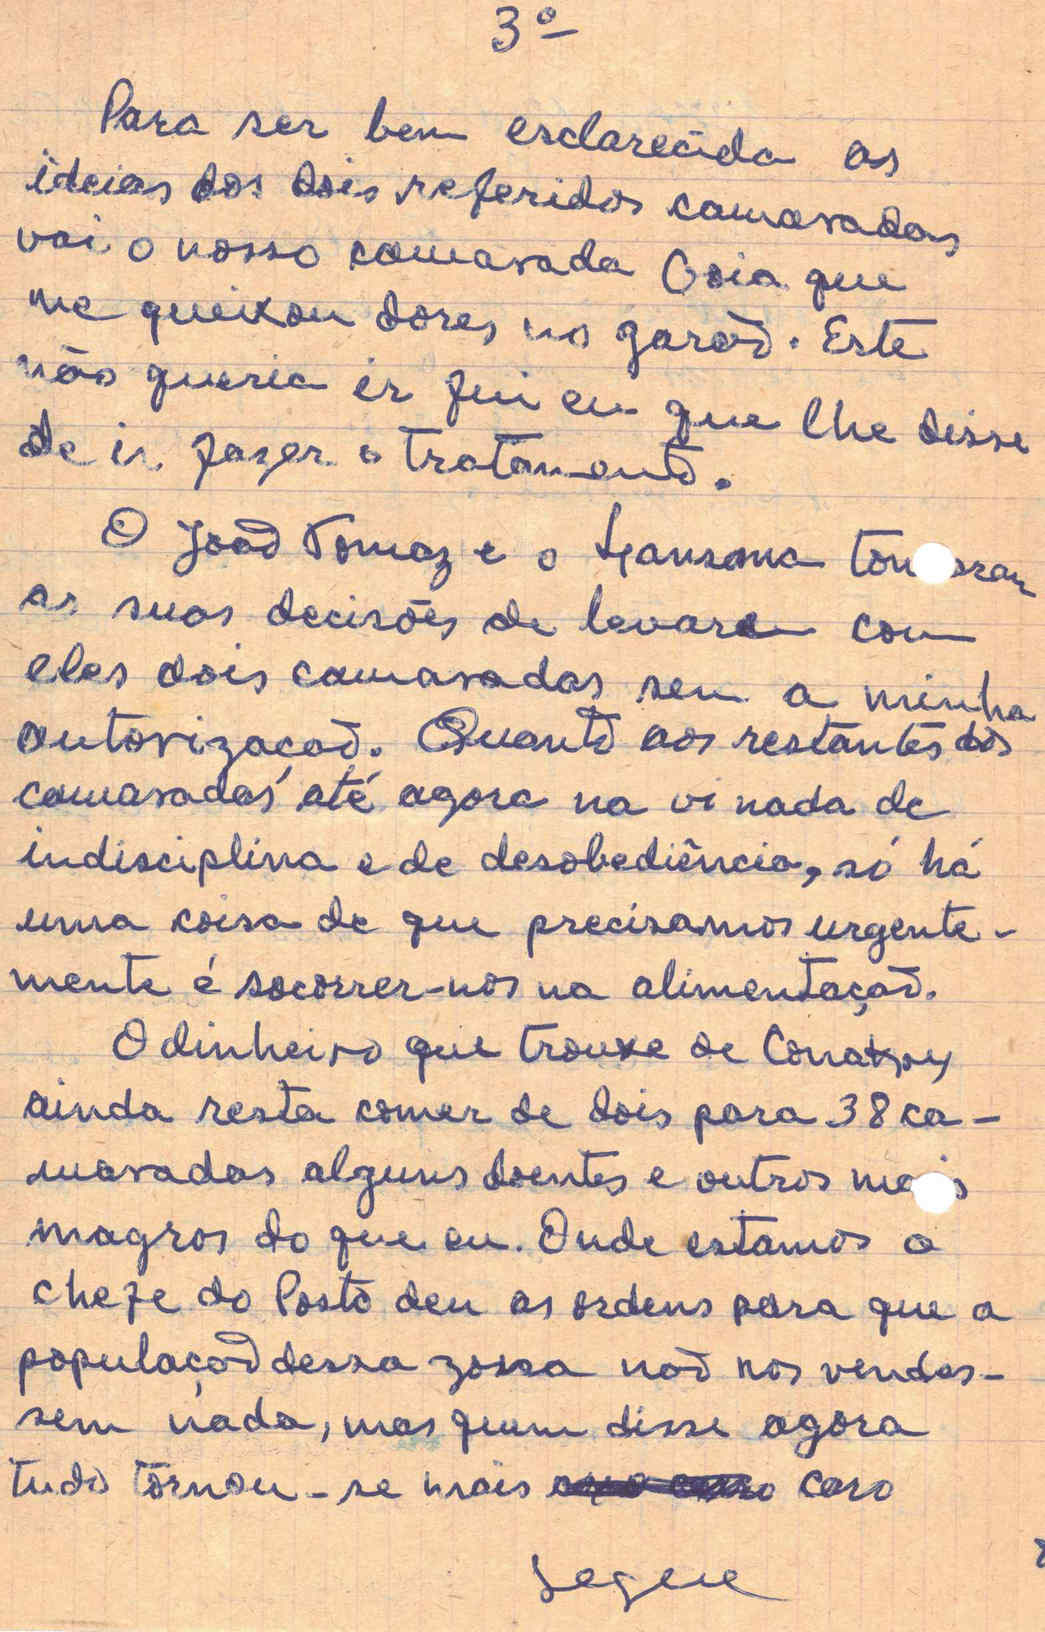 3º
Para ser bem esclarecida as
ideias dos dois referidos camaradas
vai o nosso camarada Osia que
me queixou dores no garão. Este
não queria ir fui eu que lhe disse
de ir fazer o tratamento.
O João Tomaz e o Mansona tomaram
as suas decisões de levarem com
eles dois camaradas sem a minha
autorização. Quanto aos restantes dos
camaradas até agora na vi nada de
indisciplina e de desobediência, só há
uma coisa de que precisamos urgente-
mente é socorrer-nos na alimentação.
O dinheiro que trouxe de Conakry
ainda resta comer de dois para 38 ca-
maradas alguns doentes e outros mais
magros do que eu. Onde estamos o
chefe do Posto deu as ordens para que a
população dessa zona não nos vendas-
sem nada, mas quem disse agora
tudo tornou-se mais caro
Segue